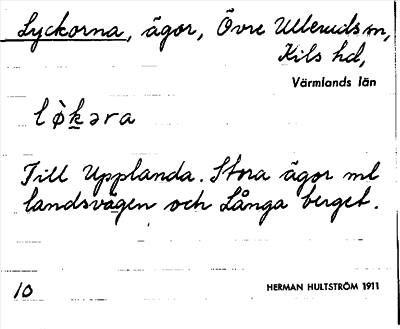 Lyckorna, ägor, Övre Ulleruds sn,
Kils hd,
Värmlands län
lø̀kəra
Till Upplanda. Stora ägor ml
landsvägen och Långa berget.
10 HERMAN HULTSTRÖM 1911